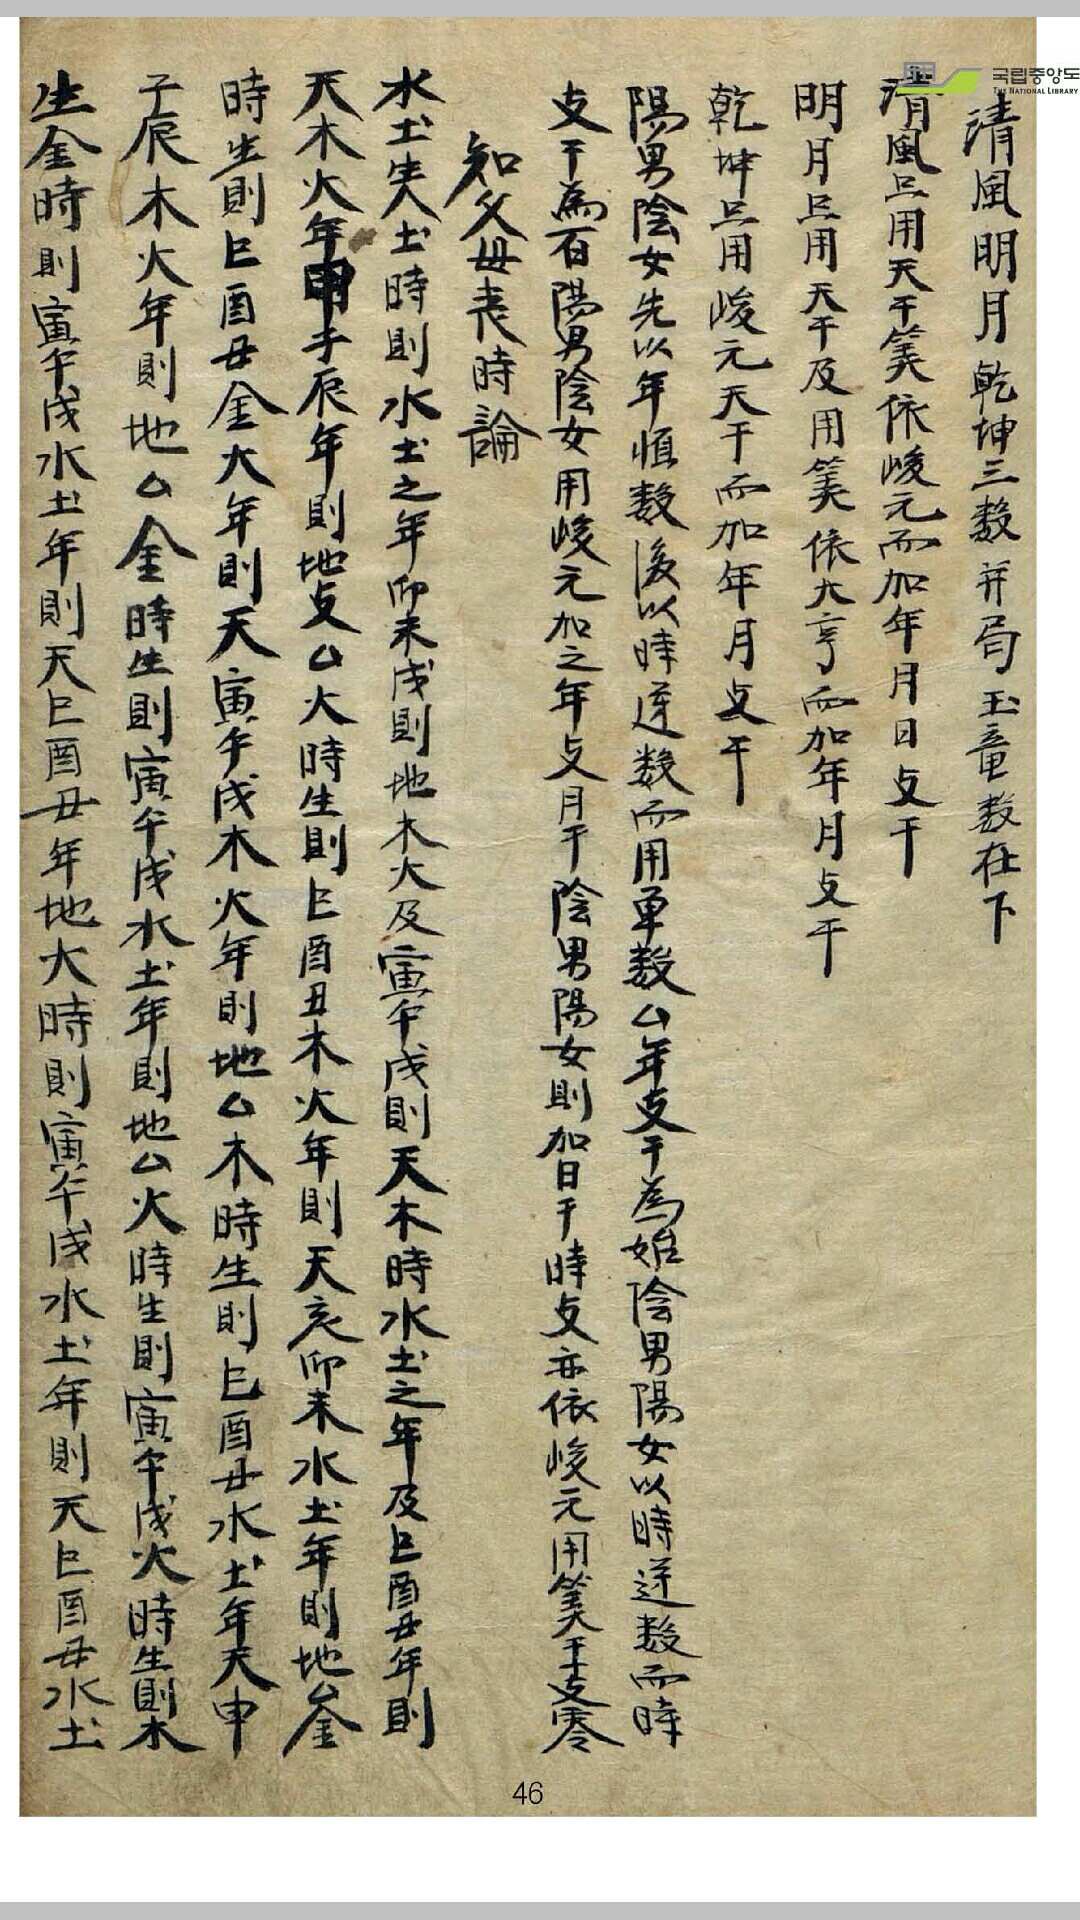 清風明月乾坤三数并局玉竜数在下
清風只用天干筭依峻元而加年月日支干
明月只用天干及用筭依大亨而加年月支干
乾坤只用峻元天干而加年月支干
陽男陰女先以年恒数後以時逆数而用単数厶年支干為始陰男陽女以時逆数而時
支干為百陽男陰女用峻元加之年支月干陰男陽女則加日干時支亦依峻元用筭干支零
知父母喪時論
水土生人土時則水土之年卯未戌則地木火及寅午戌則天木時水土之年及巳酉丑年則
天木火年申子辰年則地支厶火時生則巳酉丑木火年則天亥卯未水土年則地厶金
時生則巳酉丑金火年則天寅午戌木火年則地厶木時生則巳酉丑水土年天申
子辰木火年則地厶金時生則寅午戌水土年則地厶火時生則寅午戌火時生則木
生金時則寅午戌水土年則天巳酉丑年地火時則寅午戌水土年則天巳酉丑水土
국립중앙도
THE NATIONAL LIBRARY
46